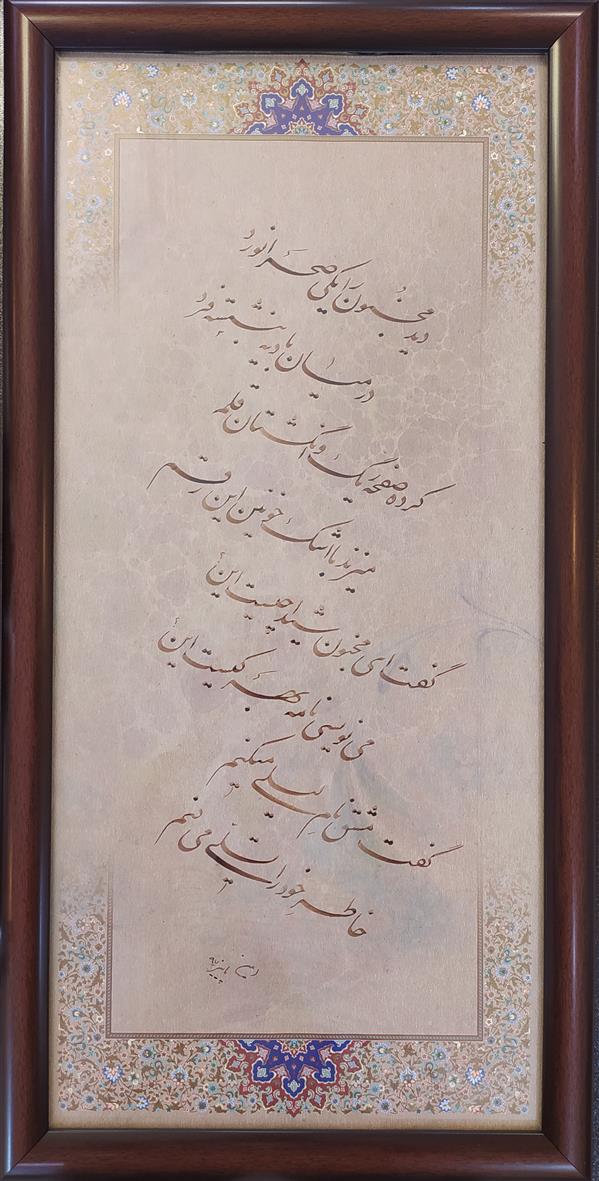 دید مجنون را یکی صحرا نورد
در میان بادیه بنشسته فرد
کرده صفحه ریگ و انگشتان قلم
میزند با اشک خونین این رقم
گفت ای مجنون شیدا چیست این
می نویسی نامه بهر کیست این
گفت مشق نام لیلی میکنم
خاطر خود را تسلی می‌دهم